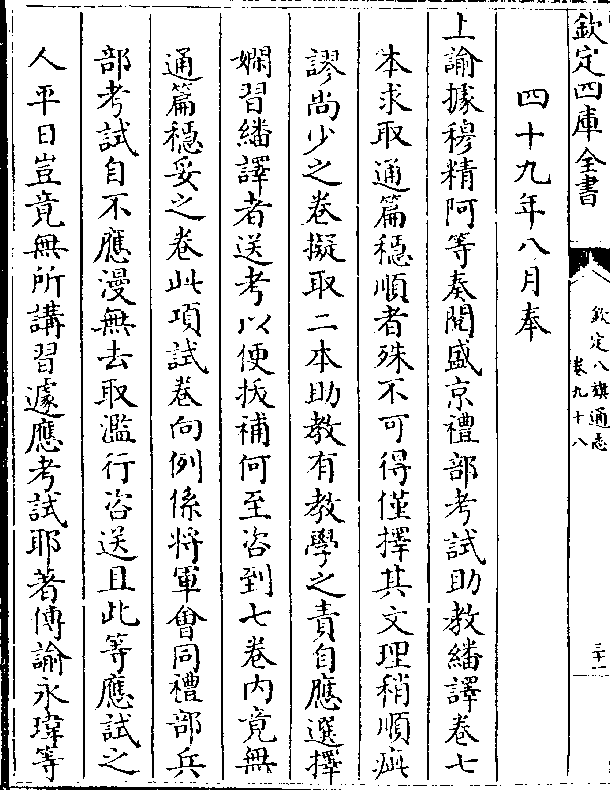 欽定四庫全書
欽定八旗通志
卷九十八
三十一
四十九年八月奉
上諭據穆精阿等奏閱盛京禮部考試助教繙譯卷七
本求取通篇穩順者殊不可得僅擇其文理稍順疵
謬尚少之卷擬取二本助教有教學之責自應選擇
嫻習繙譯者送考以便拔補何至咨到七卷內竟無
通篇穩妥之卷此項試卷向例係將軍會同禮部兵
部考試自不應漫無去取濫行咨送且此等應試之
人平日豈竟無所講習遽應考試耶著傳諭永瑋等